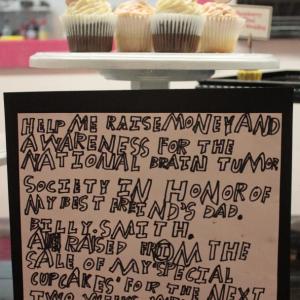 HELP ME RAISE MONEY AND
AWARENESS FOR THE
NATIONAL BRAIN TUMOR
SOCIETY IN HONOR OF
MY BEST FRIEND'S DAD.
BILLY. SMITH.
RAISED FROM THE
SALE OF MY SPECIAL
CUPCAKES FOR THE NEXT
TWO